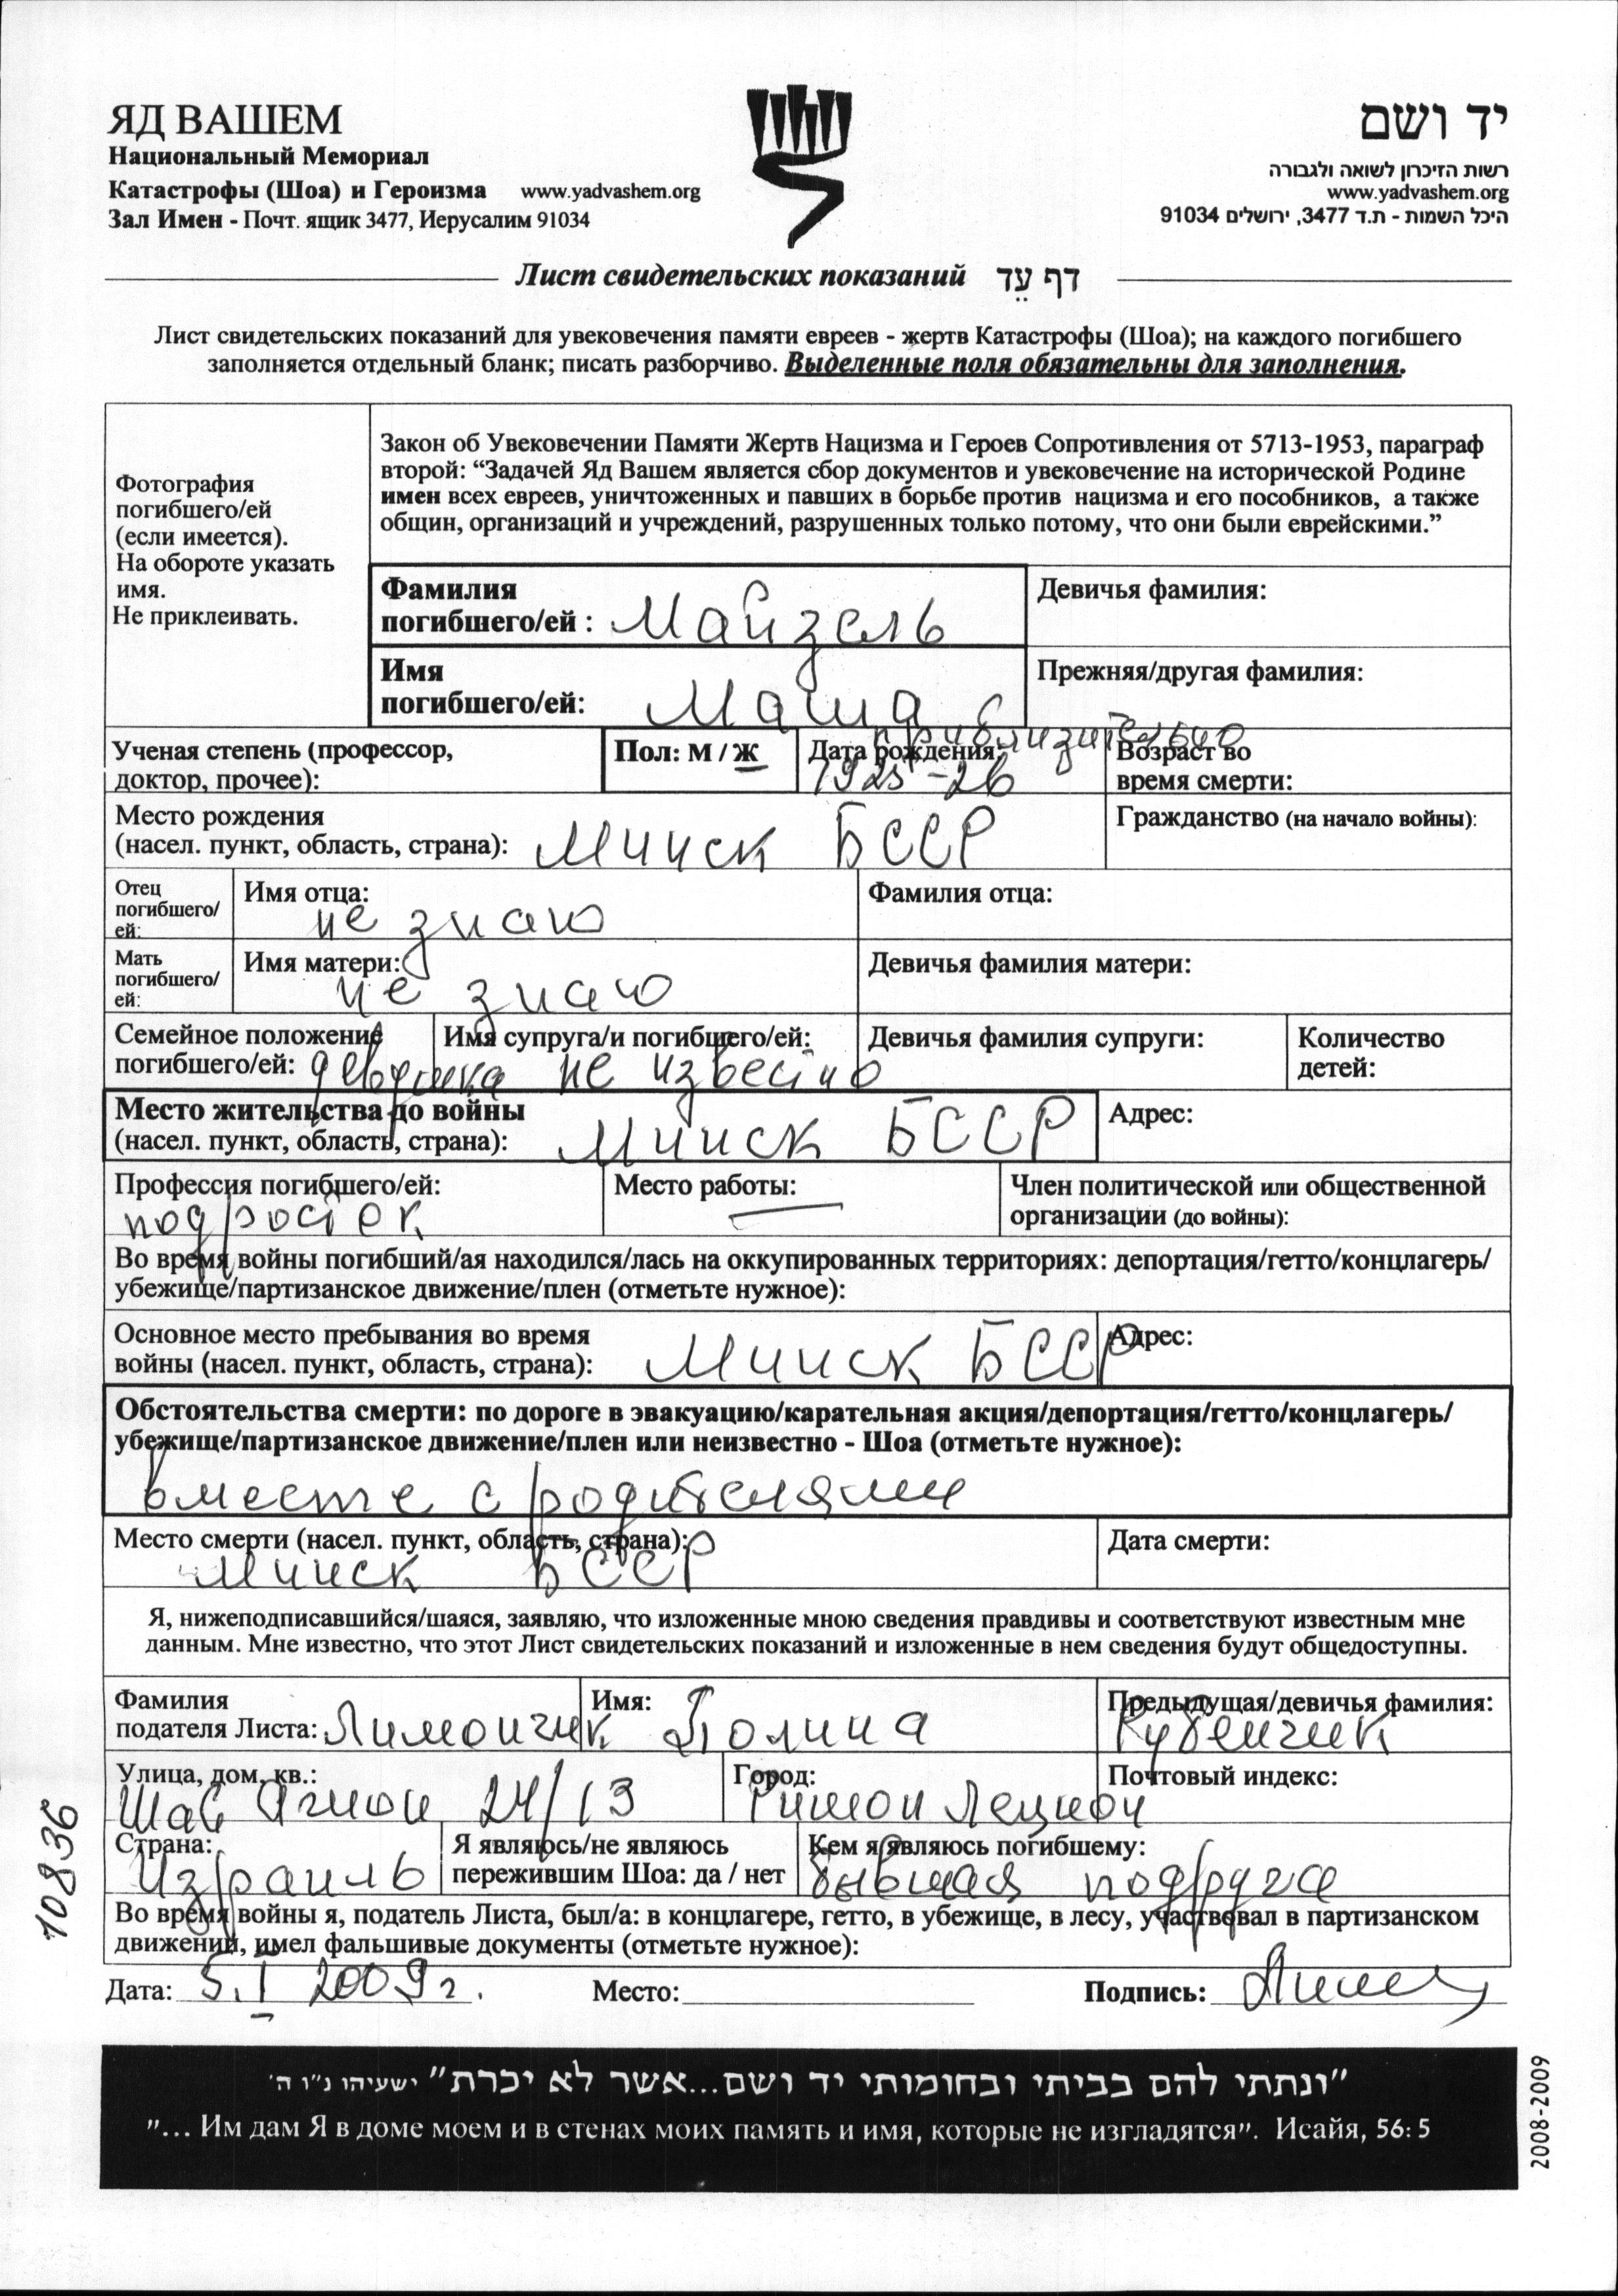 ЯД ВАШЕМ
Национальный Мемориал
Катастрофы (Шоа) и Героизма www.yadvashem.org
Зал Имен - Почт. ящик 3477, Иерусалим 91034
יד ושם
רשות הזיכרון לשואה ולגבורה
www.yadvashem.org
היכל השמות - ת.ד 3477, ירושלים 91034
Лист свидетельских показаний דף עֵד
Лист свидетельских показаний для увековечения памяти евреев - жертв Катастрофы (Шоа); на каждого погибшего
заполняется отдельный бланк; писать разборчиво. Выделенные поля обязательны для заполнения.
Фотография
погибшего/ей
(если имеется).
На обороте указать
имя.
Не приклеивать.
Закон об Увековечении Памяти Жертв Нацизма и Героев Сопротивления от 5713-1953, параграф
второй: “Задачей Яд Вашем является сбор документов и увековечение на исторической Родине
имен всех евреев, уничтоженных и павших в борьбе против нацизма и его пособников, а также
общин, организаций и учреждений, разрушенных только потому, что они были еврейскими.”
Фамилия
погибшего/ей : Майзель
Девичья фамилия:
Имя
погибшего/ей: Маша
Прежняя/другая фамилия:
Ученая степень (профессор,
доктор, прочее):
Пол: М / Ж
Дата рождения: приблизительно
1925-26
Возраст во
время смерти:
Место рождения
(насел. пункт, область, страна): Минск БССР
Гражданство (на начало войны):
Отец
погибшего/
ей:
Имя отца:
не знаю
Фамилия отца:
Мать
погибшего/
ей:
Имя матери:
не знаю
Девичья фамилия матери:
Семейное положение
погибшего/ей: девушка
Имя супруга/и погибшего/ей:
не известно
Девичья фамилия супруги:
Количество
детей:
Место жительства до войны
(насел. пункт, область, страна): Минск БССР
Адрес:
Профессия погибшего/ей:
подросток
Место работы:
Член политической или общественной
организации (до войны):
Во время войны погибший/ая находился/лась на оккупированных территориях: депортация/гетто/концлагерь/
убежище/партизанское движение/плен (отметьте нужное):
Основное место пребывания во время
войны (насел. пункт, область, страна): Минск БССР
Адрес:
Обстоятельства смерти: по дороге в эвакуацию/карательная акция/депортация/гетто/концлагерь/
убежище/партизанское движение/плен или неизвестно - Шоа (отметьте нужное):
вместе с родителями
Место смерти (насел. пункт, область, страна):
Минск БССР
Дата смерти:
Я, нижеподписавшийся/шаяся, заявляю, что изложенные мною сведения правдивы и соответствуют известным мне
данным. Мне известно, что этот Лист свидетельских показаний и изложенные в нем сведения будут общедоступны.
Фамилия
подателя Листа: Лимончик
Имя: Полина
Предыдущая/девичья фамилия:
Рубенчик
Улица, дом, кв.:
Шав Ацион 24/13
Город:
Ришон Лецион
Почтовый индекс:
Страна:
Израиль
Я являюсь/не являюсь
пережившим Шоа: да / нет
Кем я являюсь погибшему:
бывшая подруга
Во время войны я, податель Листа, был/а: в концлагере, гетто, в убежище, в лесу, участвовал в партизанском
движении, имел фальшивые документы (отметьте нужное):
Дата: 5.I 2009г.
Место:
Подпись:
"ונתתי להם בביתי ובחומותי יד ושם...אשר לא יכרת" ישעיהו נ"ו ה'
"... Им дам Я в доме моем и в стенах моих память и имя, которые не изгладятся". Исайя, 56: 5
10836
2008-2009